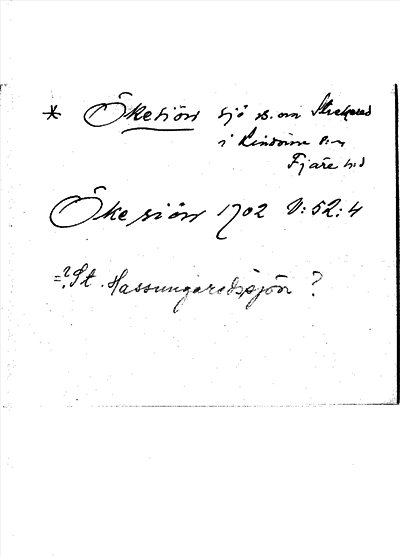 * Ökesiön sjö s.om Strekered
i Lindome s:n
Fjäre h:d
Öke siön 1702 V:52:4
=? St. Hassungaredssjön ?